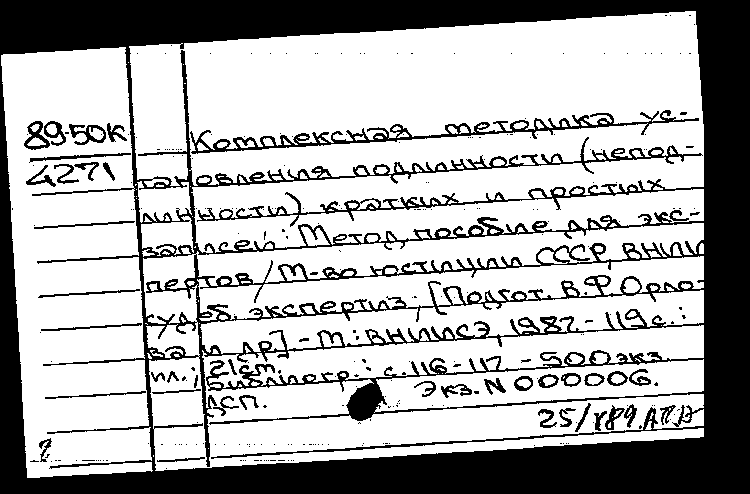 89-50К
4271
Комплексная методика ус-
тановления подлинности (непод-
линности) кратких и простых
записей: Метод. пособие для экс-
пертов / М-во юстиции СССР, ВНИИ
судеб. экспертиз; [Подгот. В.Ф.Орло-
ва и др.]. - М.: ВНИИСЭ, 1987. - 119 с.:
ил.; 21 см.
Библиогр.: с. 116-117. - 500 экз.
ДСП. Экз. N 000006.